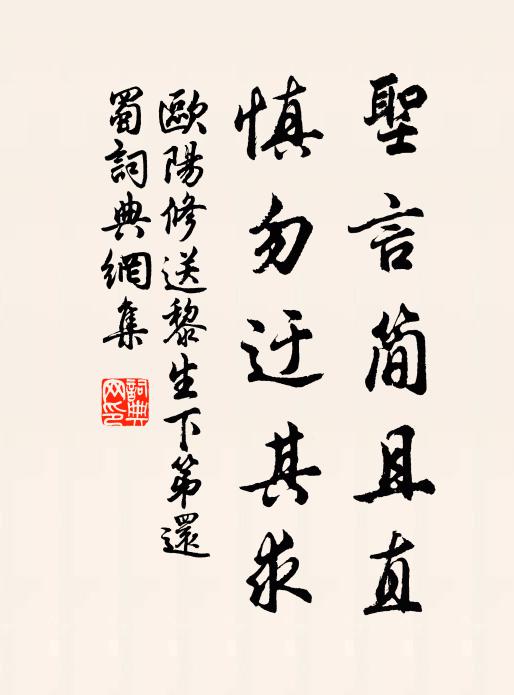 聖言簡且直
慎勿迂其求
歐陽修送黎生下第還
蜀詞典網集
詞典
网印